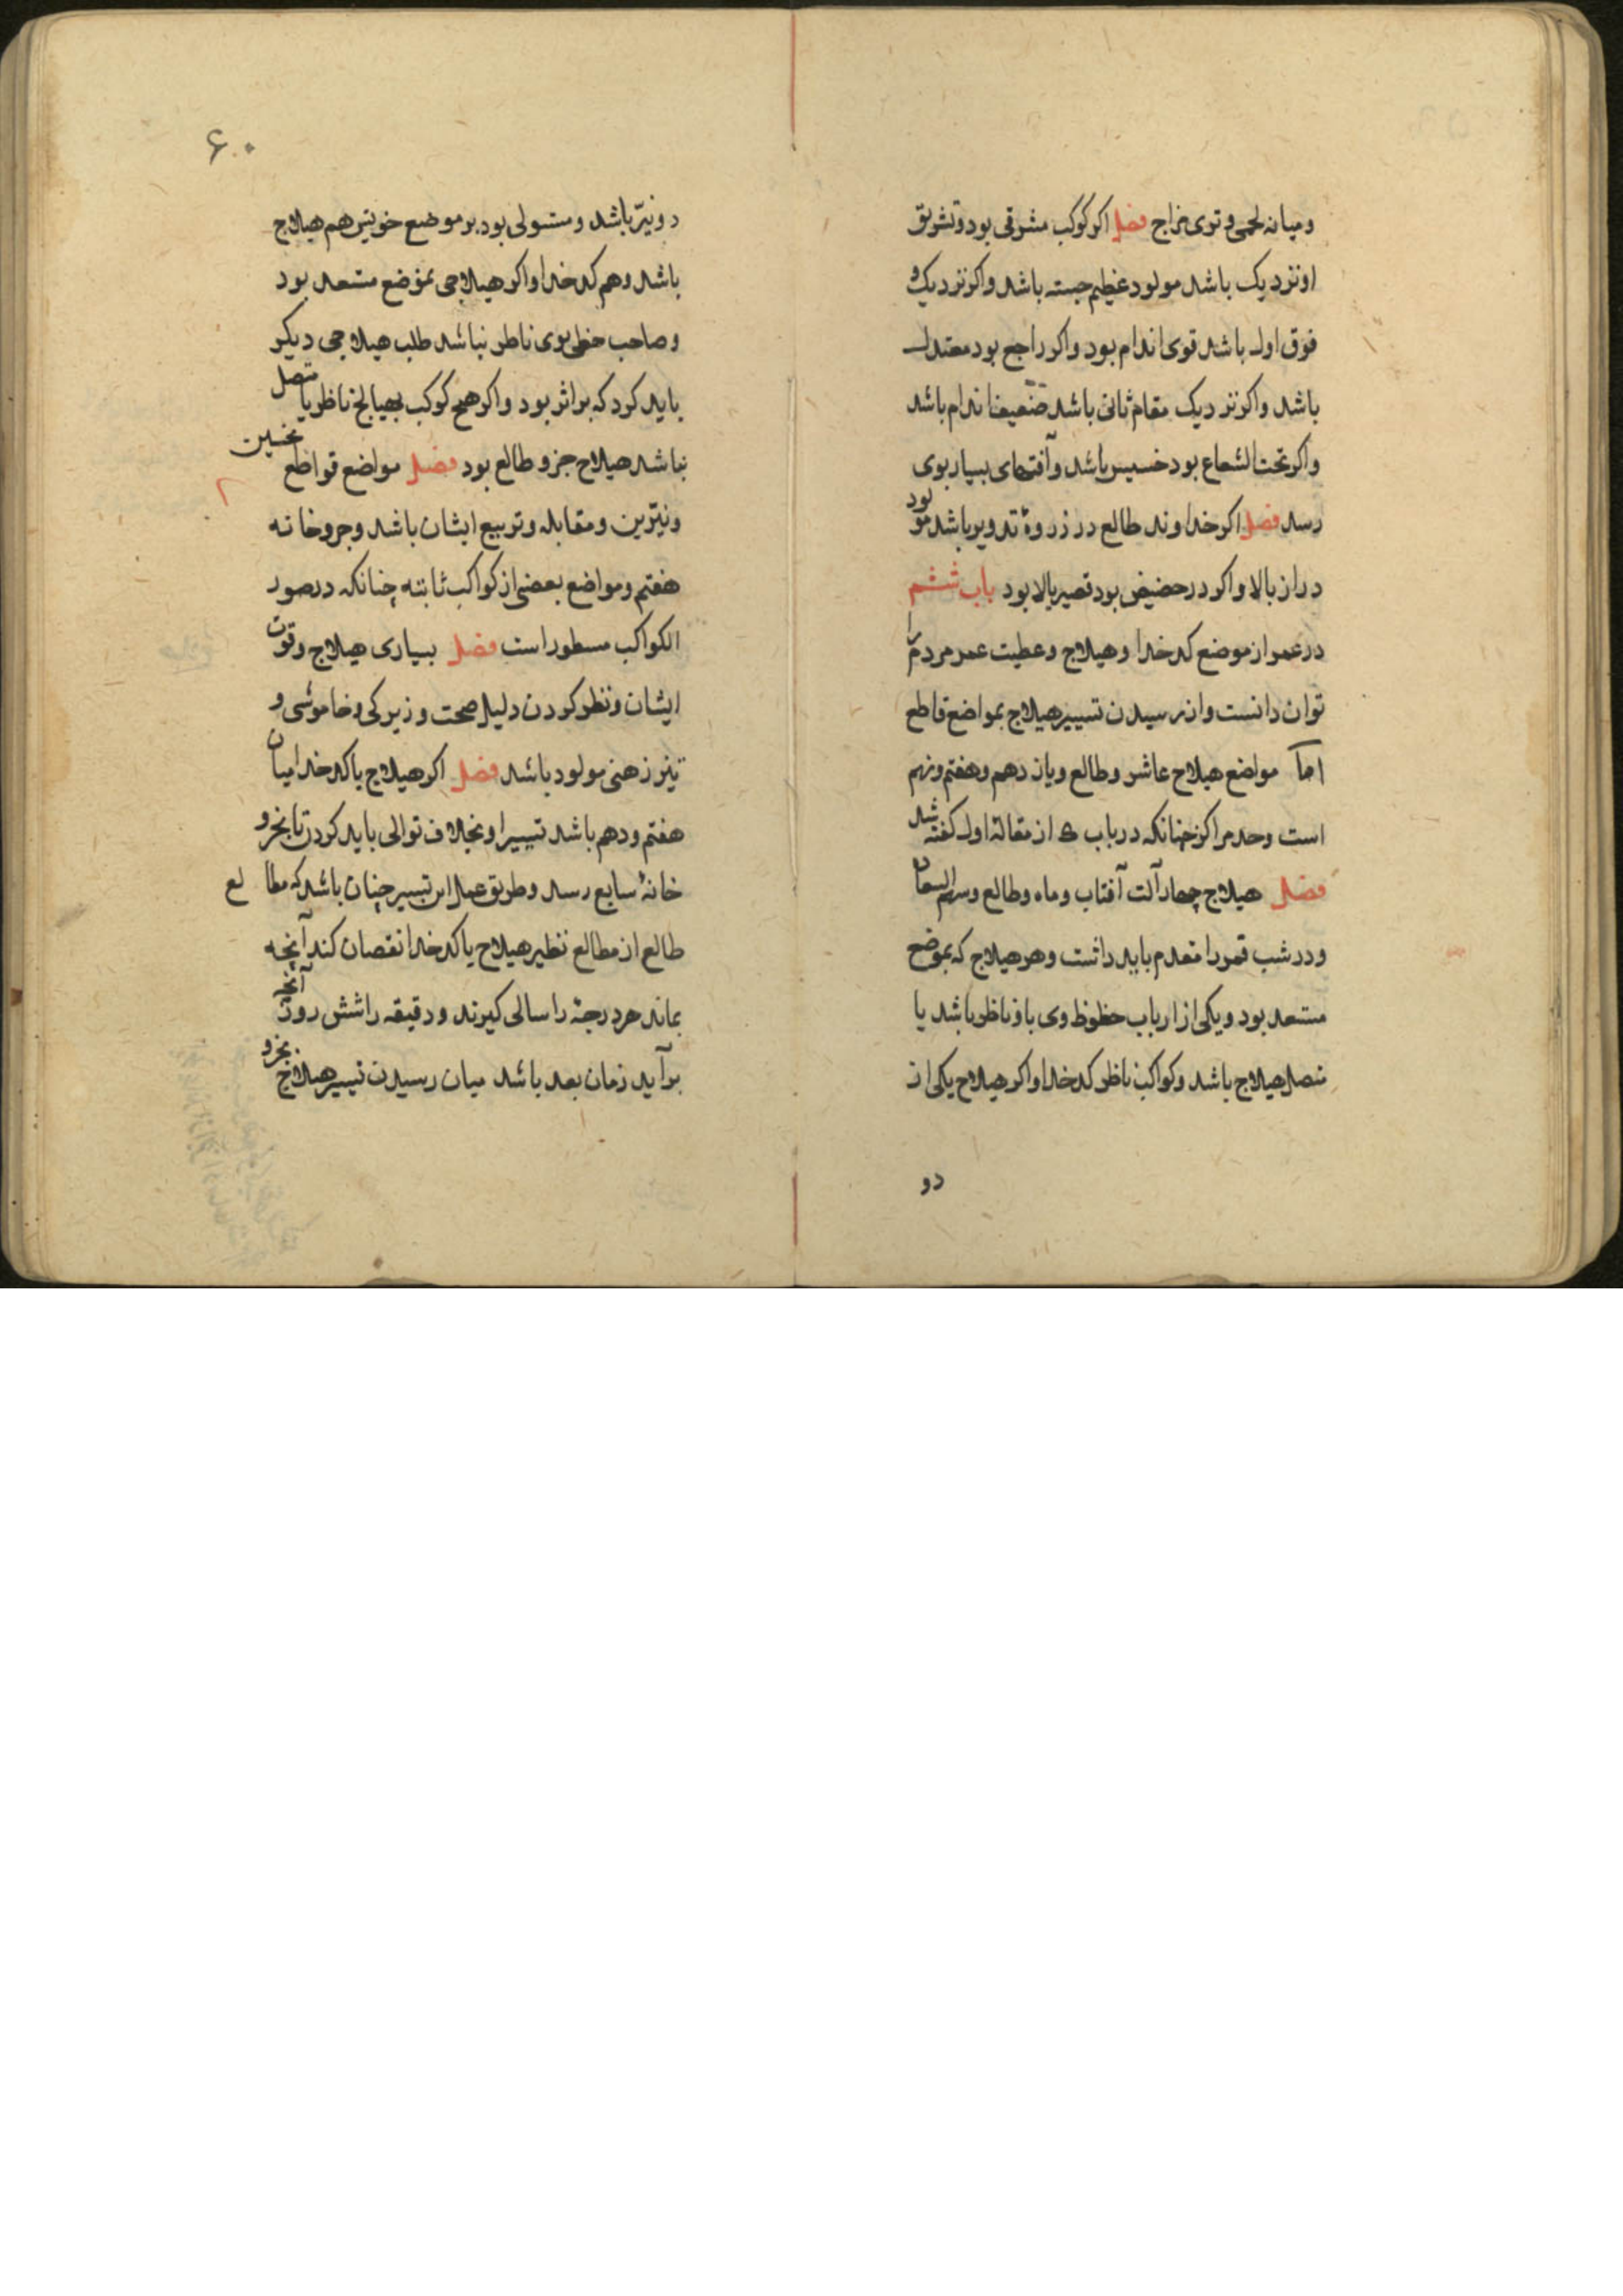 ومیانه لحمی وتوی مزاج فصل اکر کوکب مشرقی بود وتشریق
او نزدیک باشد مولود عظیم جسته باشد واکر نزدیک و
فوق اول باشد قوی اندام بود واکر راجع بود معتدل
باشد واکر نزدیک مقام ثانی باشد ضعیف اندام باشد
واکر تحت الشعاع بود خسیس باشد وآفتهای بسیار بوی
رسد فصل اکر خداوند طالع در ذروهٔ تدویر باشد مولود
دراز بالا واکر در حضیض بود قصیر بالا بود باب ششم
در عمر از موضع کدخدا وهیلاج وعطیت عمر مردم را
توان دانست واز رسیدن تسییر هیلاج بمواضع قاطع
اما مواضع هیلاج عاشر وطالع ویازدهم وهفتم ونهم
است وحد مراکز چنانکه در باب ی از مقالهٔ اول کفته شد
فصل هیلاج چهار آلت آفتاب وماه وطالع وسهم السعاده
ودر شب قمر را مقدم باید داشت وهر هیلاج که بموضع
مستعد بود ویکی از ارباب حظوظ وی باو ناظر باشد یا
متصل هیلاج باشد وکواکب ناظر کدخدا واکر هیلاج یکی از
دو
۶۰
دو نیّر باشد ومستولی بود بر موضع خویش هم هیلاج
باشد وهم کدخدا واکر هیلاجی بموضع مستعد بود
وصاحب حظی بوی ناظر نباشد طلب هیلاجی دیکر
باید کرد که بر اثر بود واکر هیچ کوکب بهیلاج ناظر یا متصل
نباشد هیلاج جزو طالع بود فصل مواضع قواطع نحسین
ونیّرین ومقابله وتربیع ایشان باشد وجزو خانه
هفتم ومواضع بعضی از کواکب ثابته چنانکه در صور
الکواکب مسطور است فصل بسیاری هیلاج وقوت
ایشان ونظر کردن دلیل صحت وزیرکی وخاموشی و
تیز ذهنی مولود باشد فصل اکر هیلاج یا کدخدا میان
هفتم ودهم باشد تسییر او بخلاف توالی باید کردن تا بجزو
خانهٔ سابع رسد وطریق عمل این تسییر چنان باشد که مطالع
طالع از مطالع نظیر هیلاج یا کدخدا نقصان کند آنچه
بماند هر درجهٔ را سالی کیرند ودقیقه را شش روز آنچه
برآید زمان بعد باشد میان رسیدن تسییر هیلاج بجزو